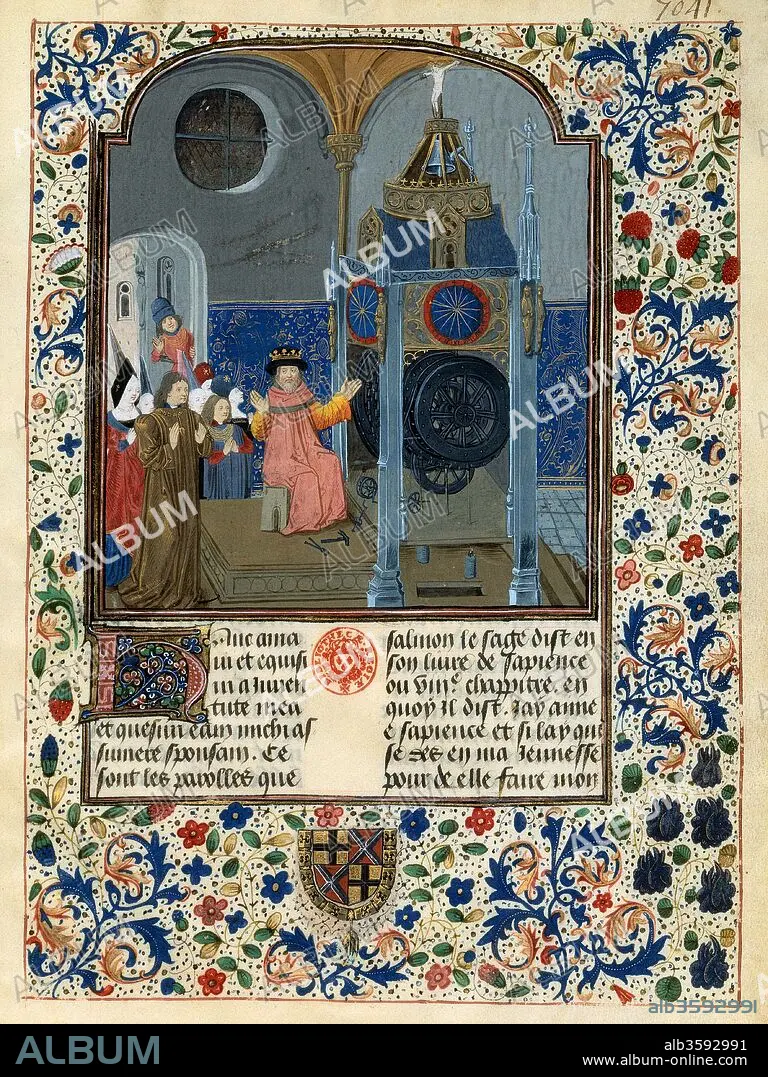 7041.
Hanc ama
ui et equisi
ui a Iuven
tute mea
et quesiui eam michi as
sumere sponsam. Ce
sont les parolles que
salmon le sage dist en
son livre de sapience
ou viiie. chappitre. en
quoy Il dist. Jay ayme
e sapience et si lay que
se des en ma Jeunesse
pour de elle faire mon
ALBUM
alb3592991
ALBUM
alb3592991
www.album-online.com